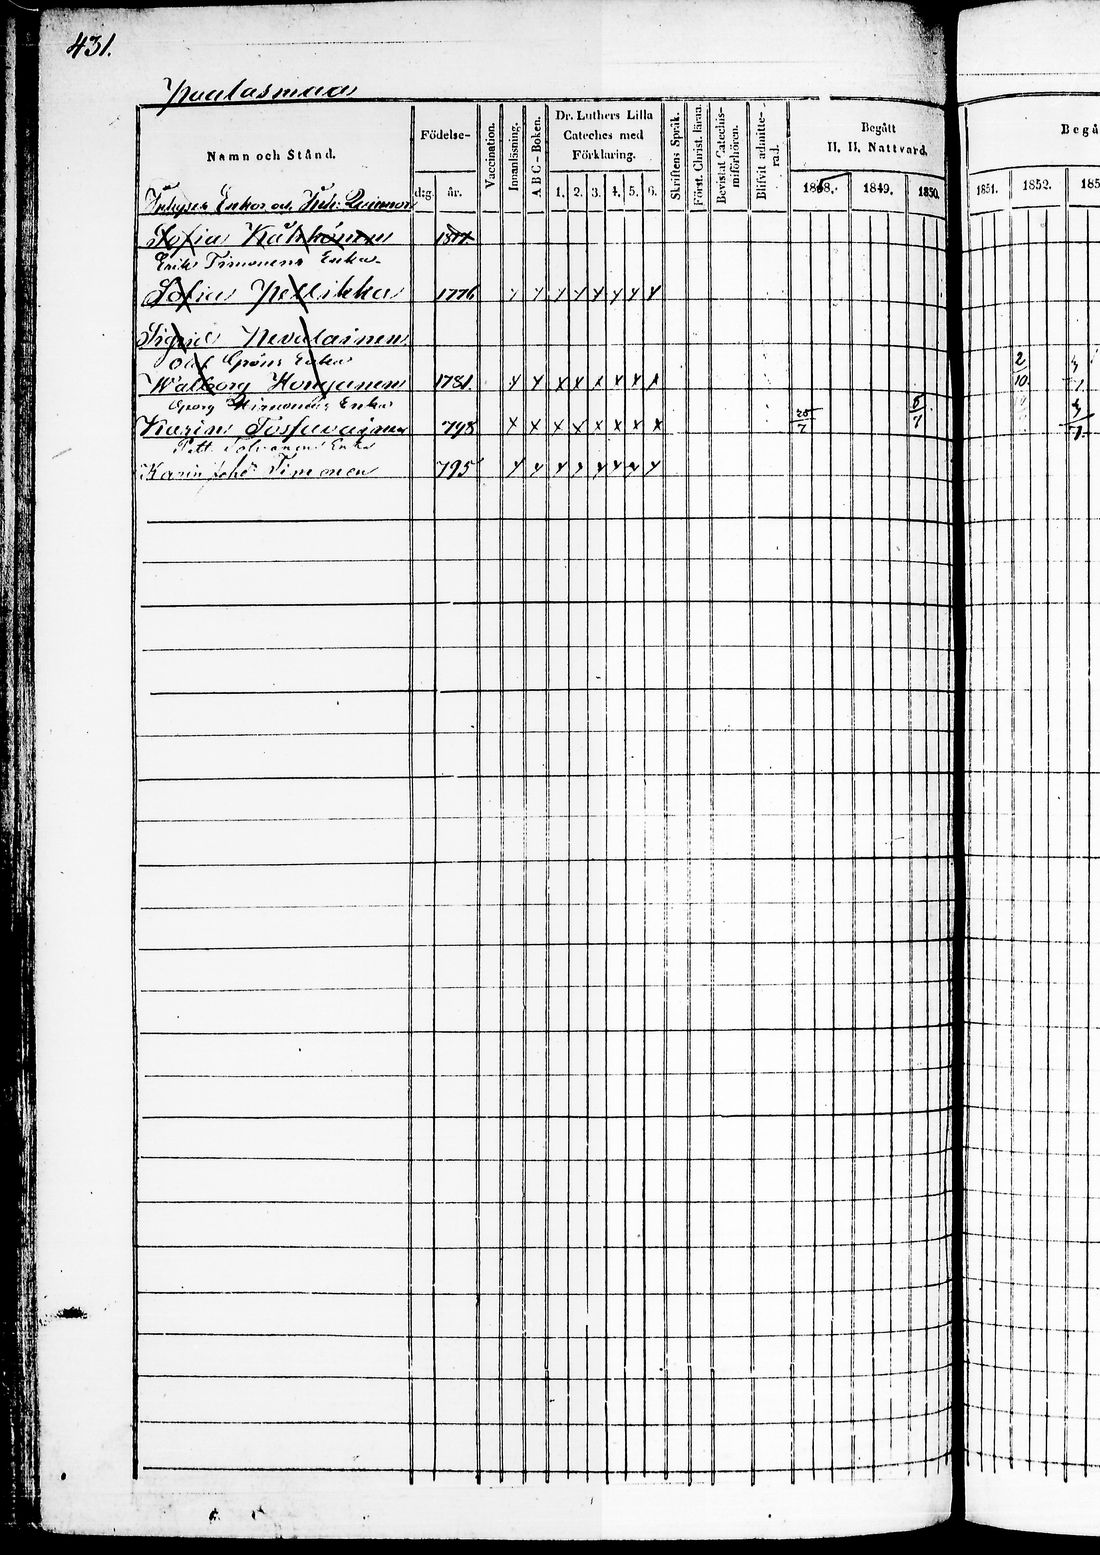 431.
Paalasmaa
Namn och Stånd.
Födelse-
d:g
år.
Vaccination.
Innanläsning.
A B C - Boken.
Dr. Luthers Lilla
Cateches med
Förklaring.
1. 2. 3. 4. 5. 6.
Skriftens Språk.
Först. Christ. läran.
Bevistat Catechis-
miförhören.
Blifvit admitte-
rad.
Begått
H. H. Nattvard.
1848. 1849. 1850.
Begå
1851. 1852. 185
Inhyses Enkor och Inh: Qvinnor
Sofia Kähkönen
Erik Timonens Enka
Sofia Pellikka 1776 x x x x x x x x
Sigrid Nevalainen
Olof Gröns Enka
Walborg Honganen 1781 x x x x x x x x 2/10
Georg Hirvonens Enka
Karin Toskavainen 798 x x x x x x x x 25/7 8/7
Enka
Karin Timonen 795 x x x x x x x x